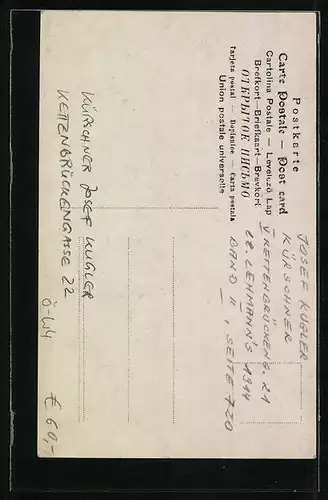 Postkarte
Carte Postale — Post card
Cartolina Postale — Levelező Lap
Brefkort—Briefkaart—Brevkort
ОТКРЫТОЕ ПИСЬМО
Tarjeta postal — Dopisnice — Carta postala
Union postale universelle
JOSEF KUGLER
KÜRSCHNER
V KETTENBRÜCKENG. 21
LEHMANN'S 1914
BAND II, SEITE 720
KÜRSCHNER JOSEF KUGLER
KETTENBRÜCKENGASSE 22
Ö-W4
€ 60,-